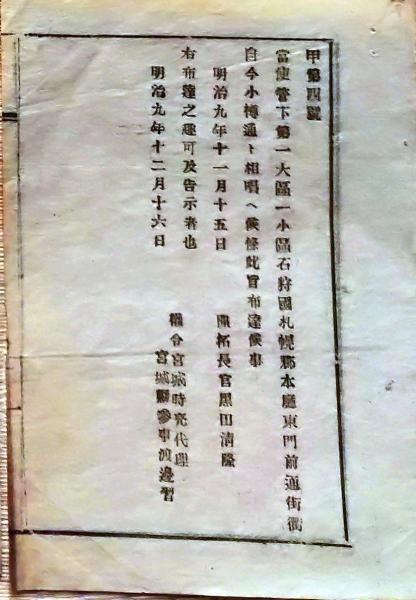 甲第四號
當使管下第一大區一小區石狩國札幌郡本廳東門前通街衢
自今小樽通ト相唱ヘ候條此旨布達候事
明治九年十一月十五日
開拓長官黑田清隆
右布達之趣可及告示者也
明治九年十二月十六日
權令宮城時亮代理
宮城縣參事渡邊習